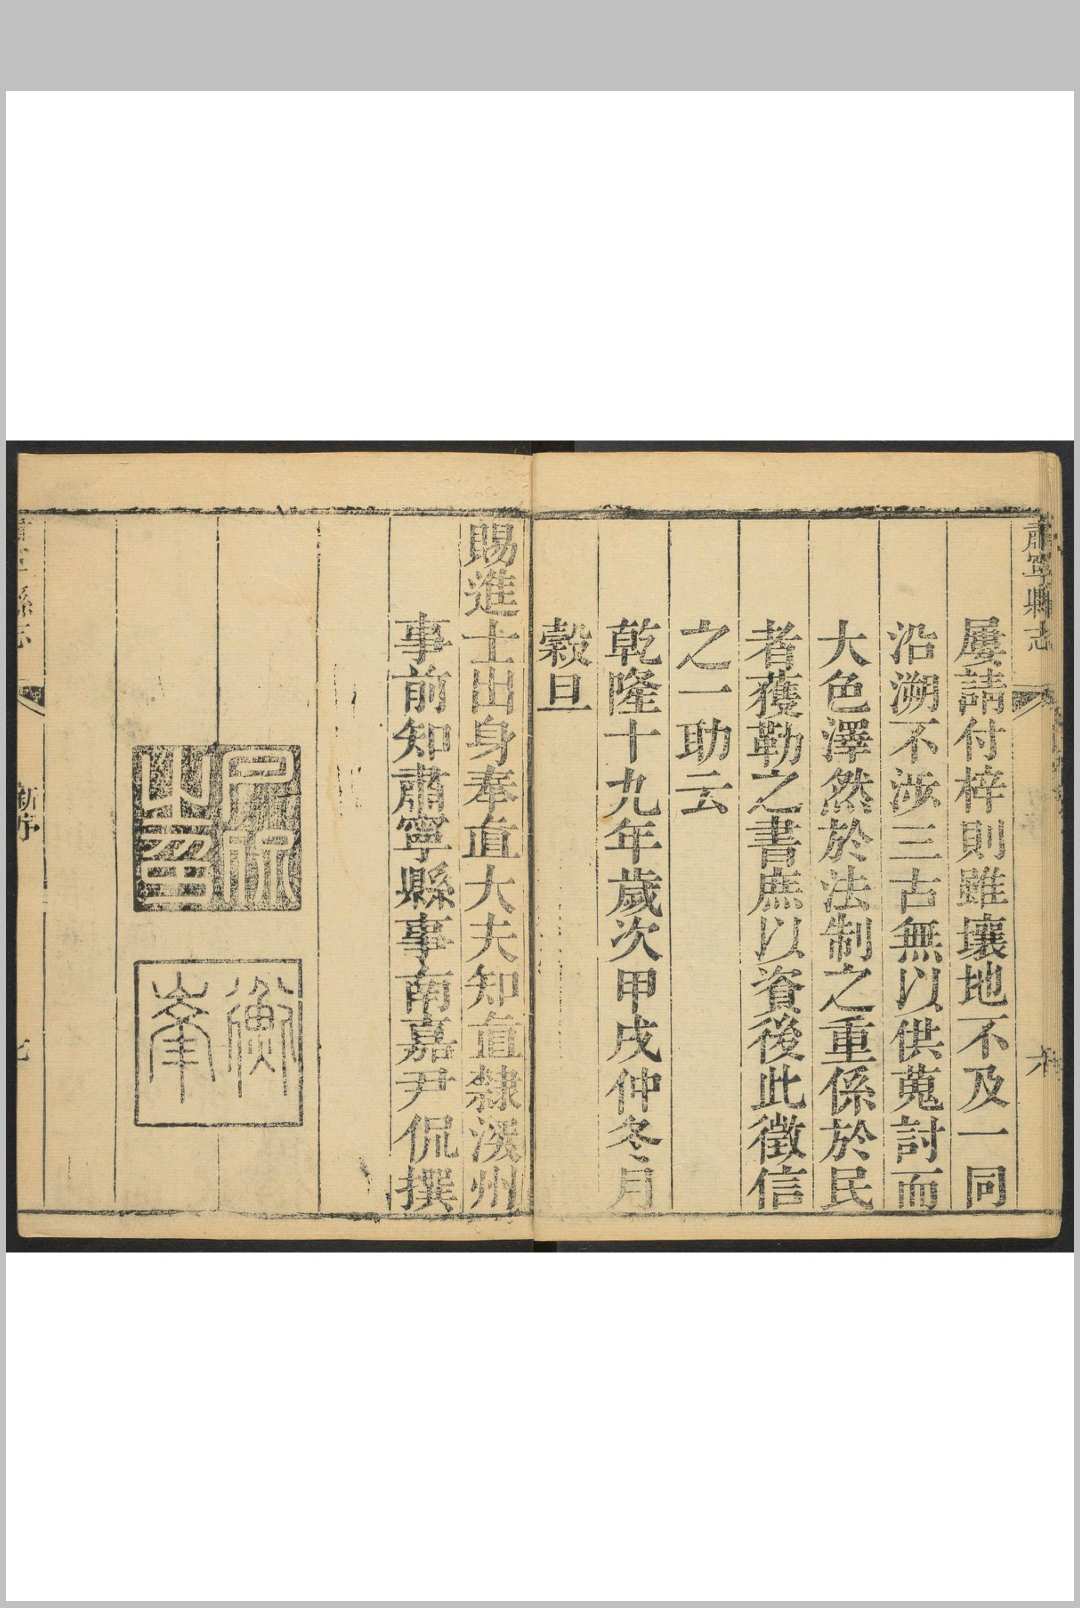 肅寧縣志
屢請付梓則雖壤地不及一同
沿溯不涉三古無以供蒐討而
大色澤然於法制之重係於民
者獲勒之書庶以資後此徵信
之一助云
乾隆十九年歲次甲戌仲冬月
穀旦
六
賜進士出身奉直大夫知直隸州
事前知肅寧縣事南嘉尹侃撰
衡峯
縣志
新序
七